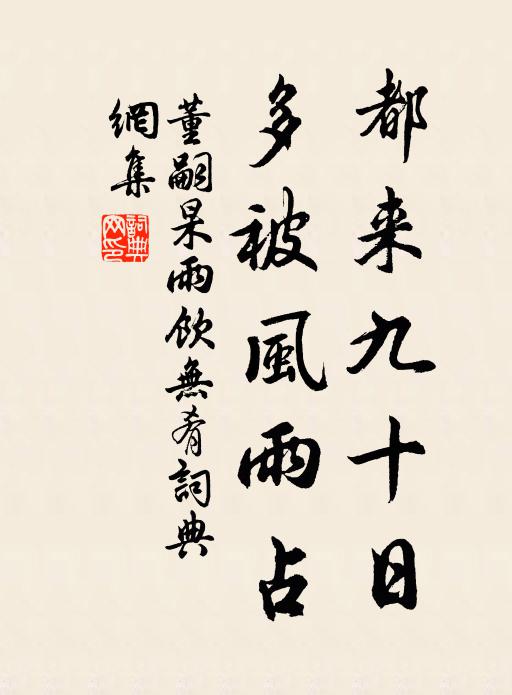 都来九十日
多被風雨占
董嗣杲雨飲無肴詞典
網集
詞典
网印